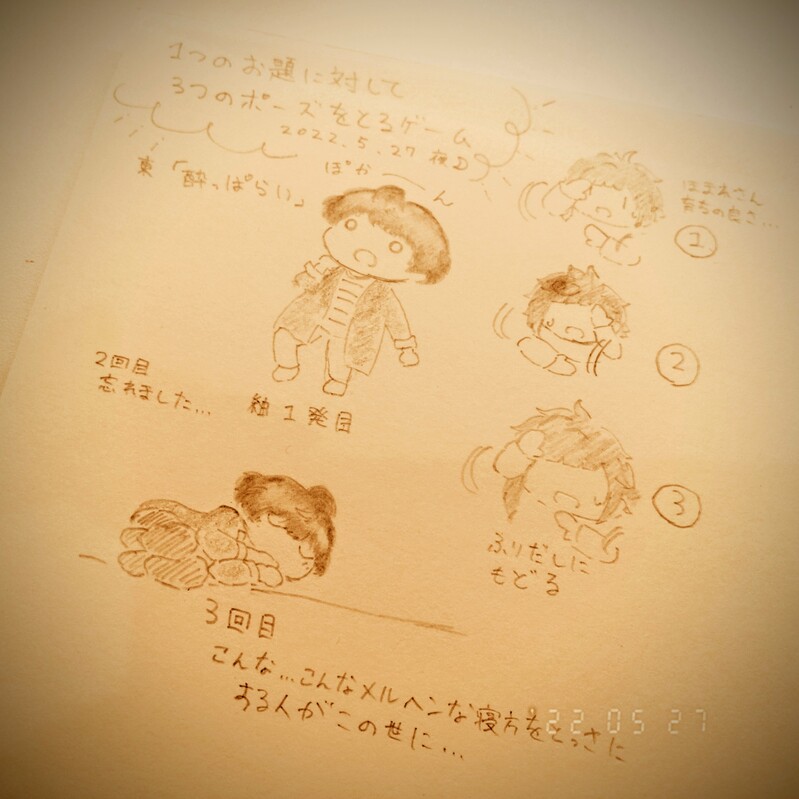 1つのお題に対して
3つのポーズをとるゲーム
2022.5.27 夜D
東「酔っぱらい」
ぽかーーん
ほまれさん
育ちの良さ...
①
②
2回目
忘れました...
紬 1発目
③
ふりだしに
もどる
3回目
こんな...こんなメルヘンな寝方をとっさに
する人がこの世に...
'22 05 27